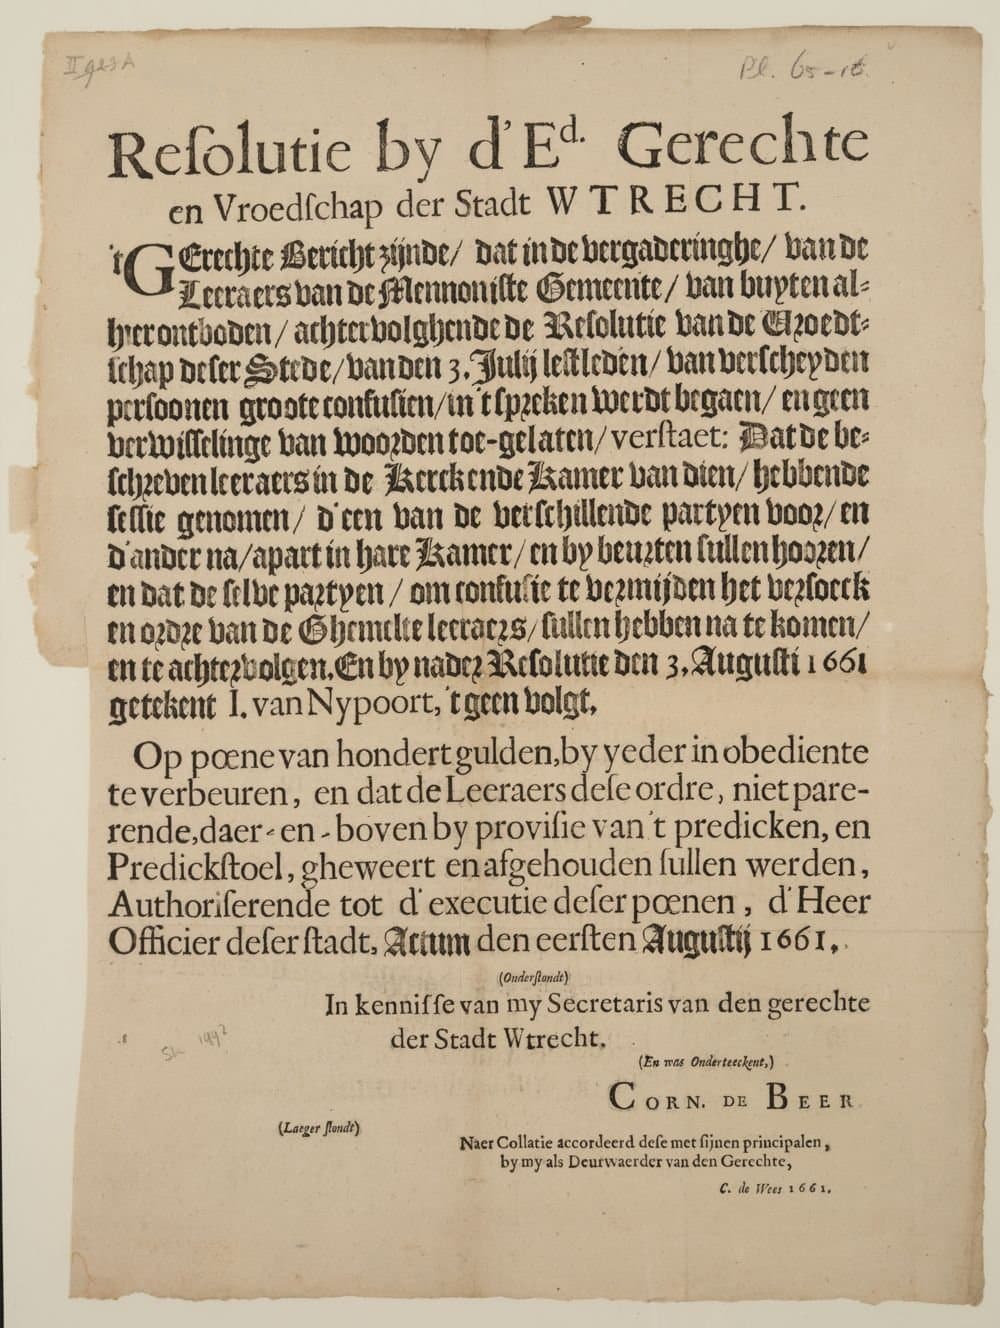 Pl. 65-
Reſolutie by d'Ed. Gerechte
en Vroedſchap der Stadt WTRECHT.
't GErechte Bericht zijnde / dat in de vergaderinghe / van de
Leeraers van de Mennoniſte Gemeente / van buyten al-
hier ontboden / achtervolghende de Reſolutie van de Vroedt-
ſchap deſer Stede / van den 3. Julij leſtleden / van verſcheyden
perſoonen groote confuſien / in 't ſpreken werdt begaen / en geen
verwiſſelinge van woorden toe-gelaten / verſtaet: Dat de be-
ſchreven leeraers in de Kerck ende Kamer van dien / hebbende
ſeſſie genomen / d'een van de verſchillende partyen voor / en
d'ander na / apart in hare Kamer / en by beurten ſullen hooren /
en dat de ſelve partyen / om confuſie te vermijden het verſoeck
en ordre van de Ghemelte leeraers / ſullen hebben na te komen /
en te achtervolgen. En by nader Reſolutie den 3. Auguſti 1661
getekent I. van Nypoort, 't geen volgt.
Op pœne van hondert gulden, by yeder in obediente
te verbeuren, en dat de Leeraers deſe ordre, niet pare-
rende, daer-en-boven by proviſie van 't predicken, en
Predickſtoel, gheweert en afgehouden ſullen werden,
Authoriſerende tot d'executie deſer pœnen, d'Heer
Officier deſer ſtadt, Actum den eerſten Auguſtij 1661.
(Onderſtondt)
In kenniſſe van my Secretaris van den gerechte
der Stadt Wtrecht.
(En was Onderteeckent,)
CORN. DE BEER
(Laeger ſtondt)
Naer Collatie accordeerd deſe met ſijnen principalen,
by my als Deurwaerder van den Gerechte,
C. de Wees 1661.